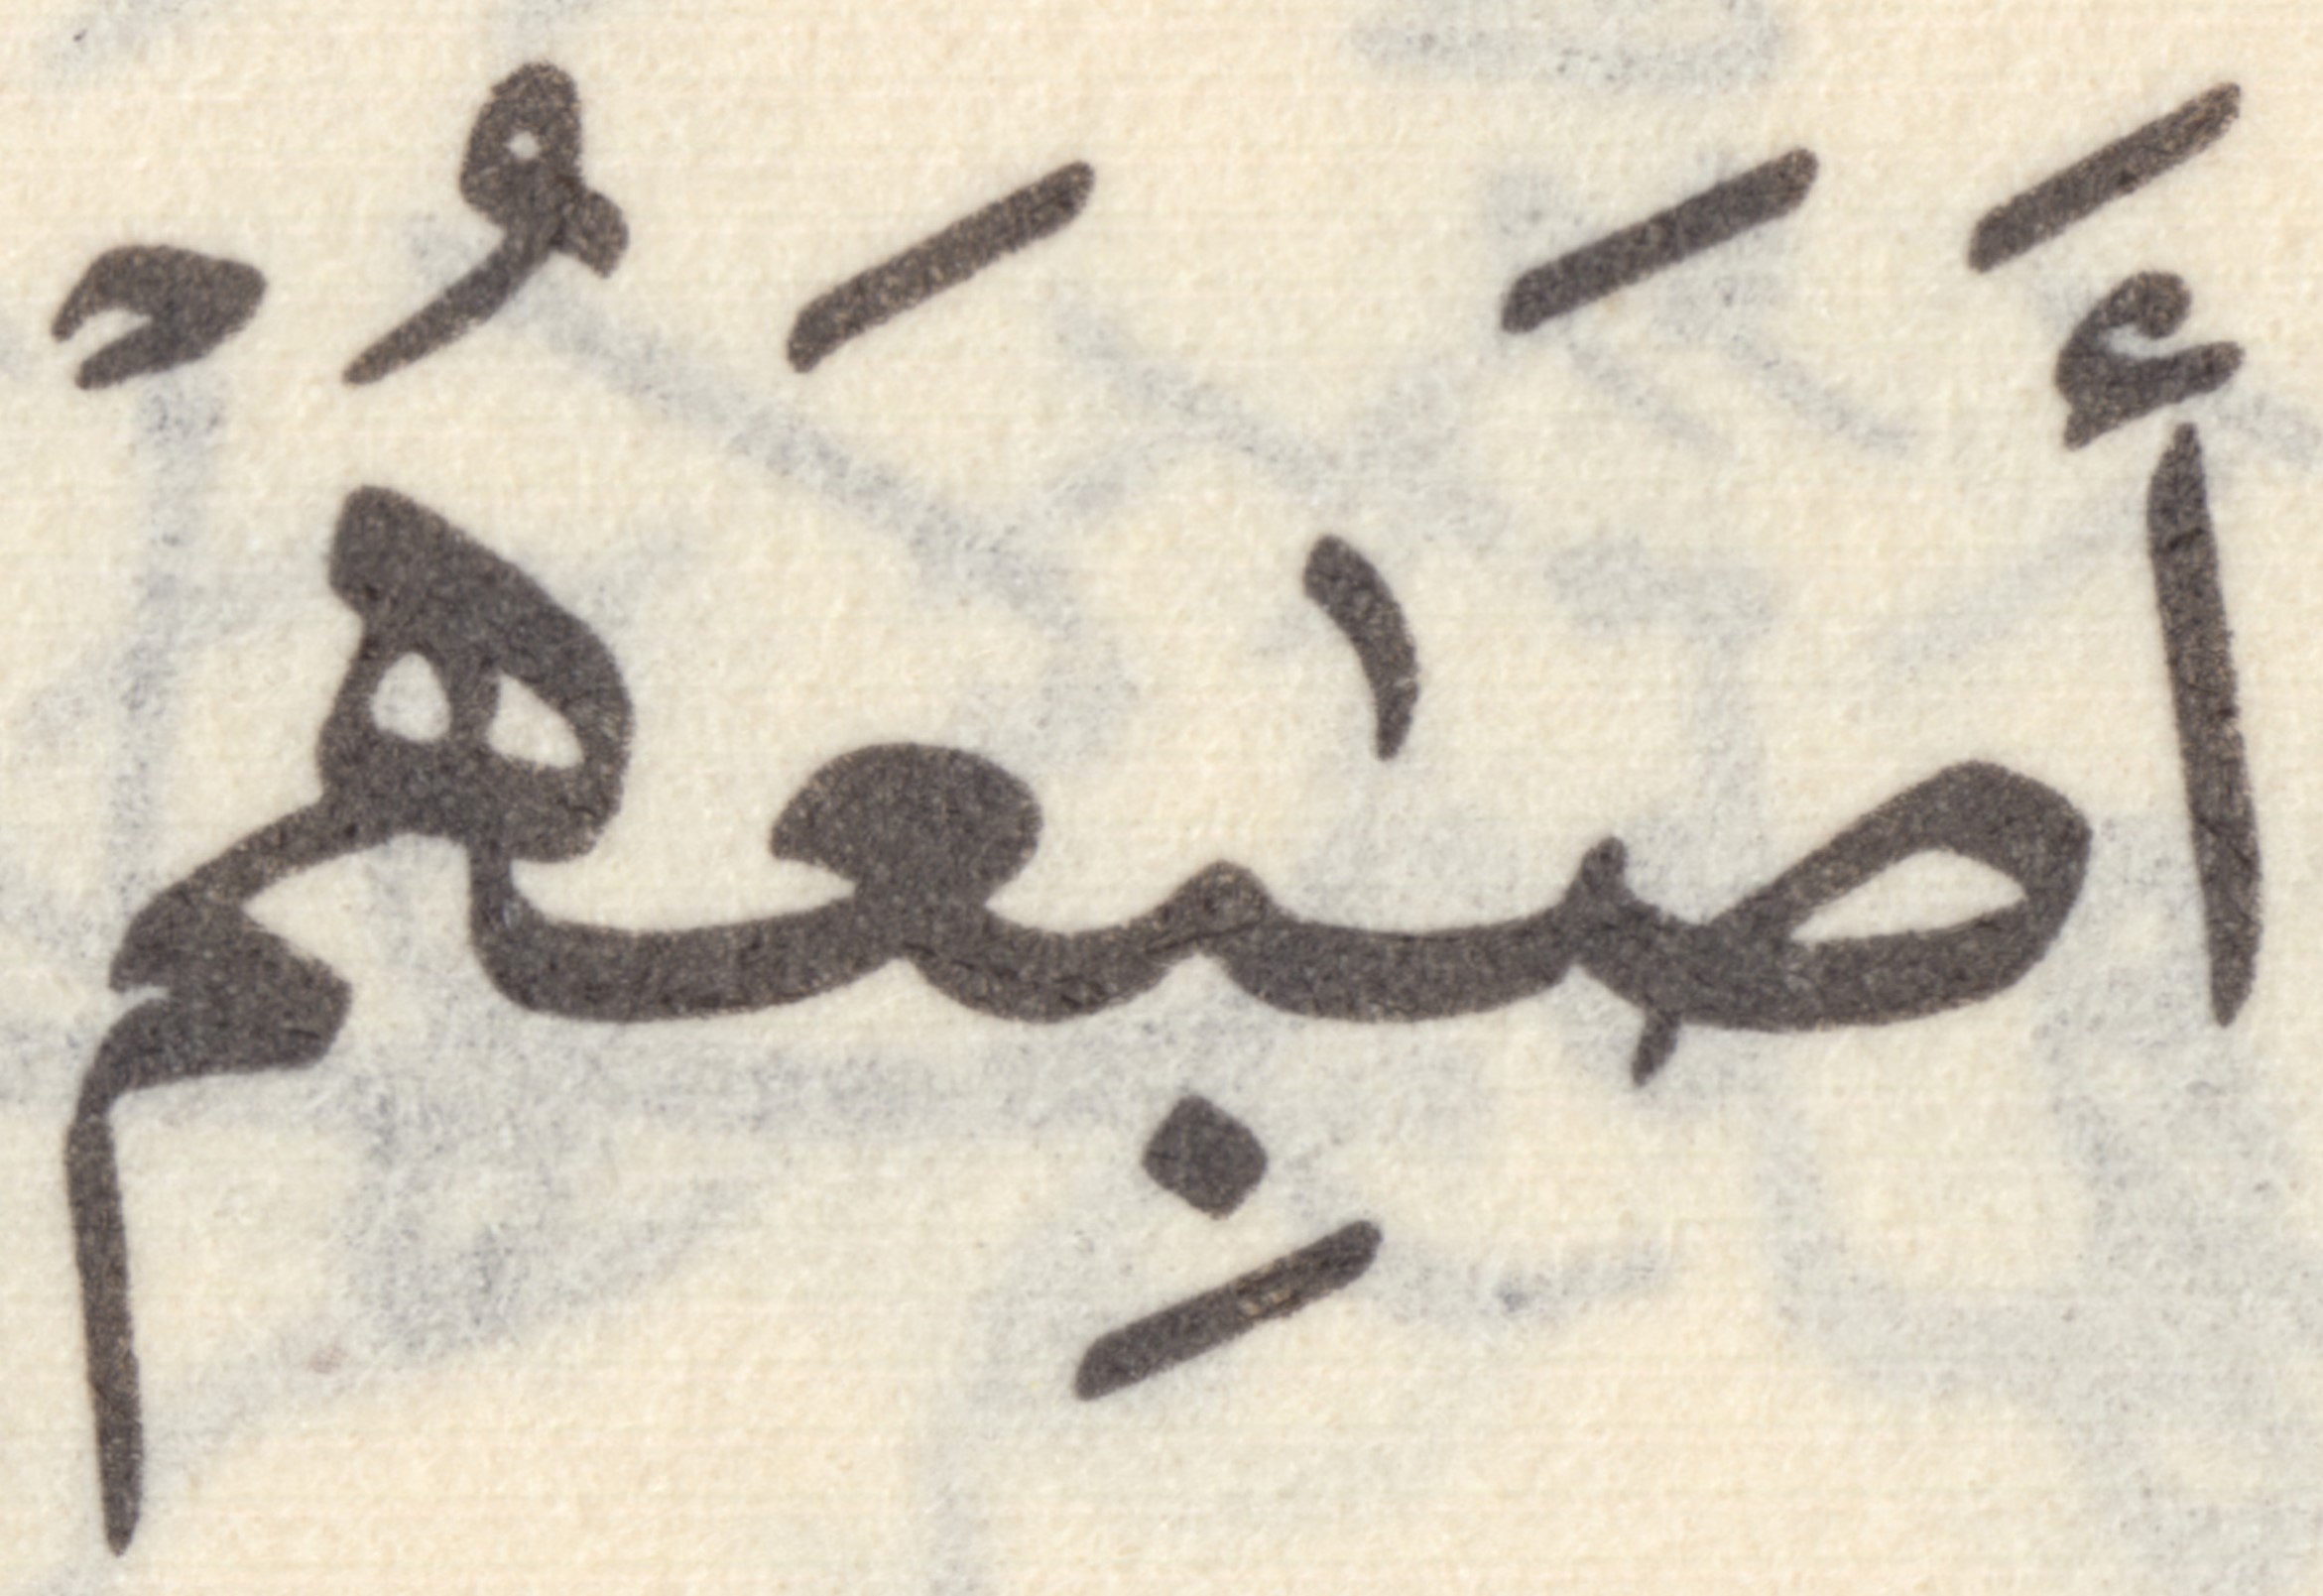 أَصَٰبِعَهُمْ